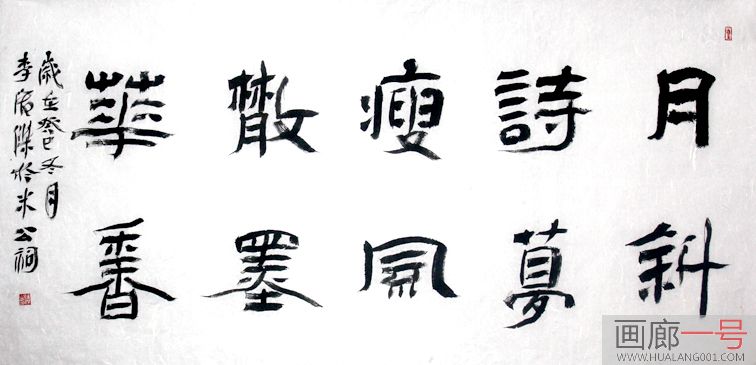 月斜
詩夢
瘦風
散墨
華香
歲在癸巳冬月
李廣傑於米公祠
画廊一号
WWW.HUALANG001.COM